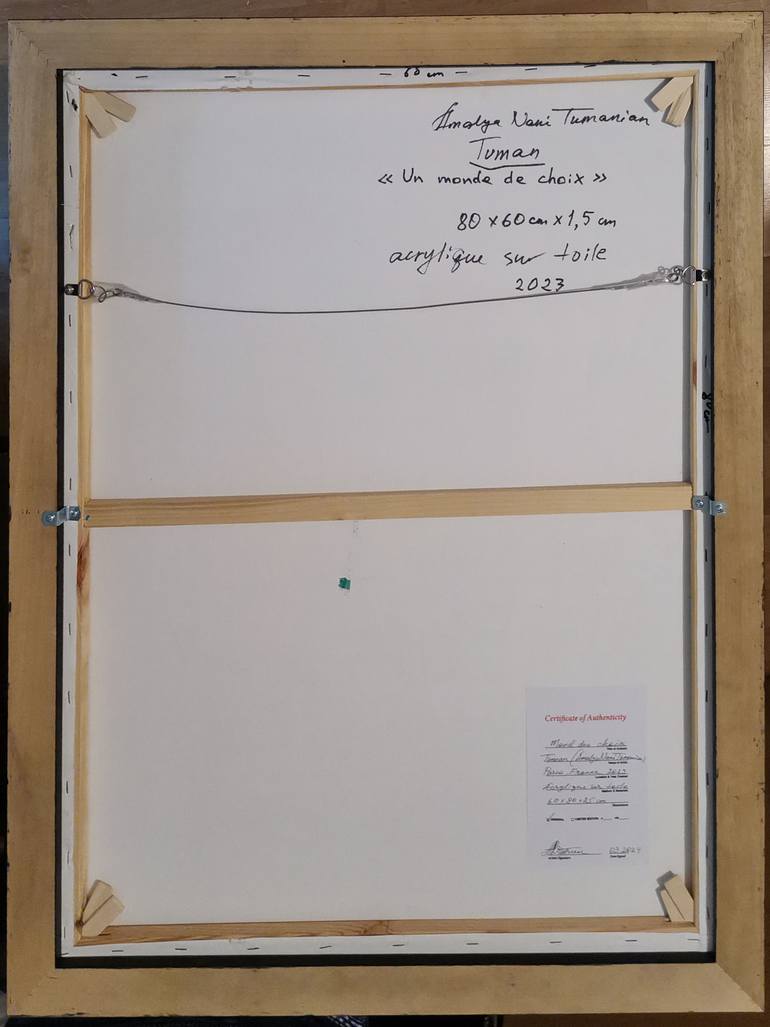 60 cm
Amalya Nani Tumanian
Tuman
« Un monde de choix »
80 x 60 cm x 1,5 cm
acrylique sur toile
2023
80 cm
Certificate of Authenticity
choix
Tuman (Amalya Nani Tumanian)
Paris France 2023
Acrylique sur toile
03.2024